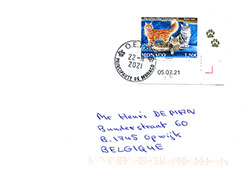 O.E.T.
22-7
2021
PRINCIPAUTE DE MONACO
MONACO 1,50€
05.07.21
Mr Henri DEMAN
Bunderstraat 60
B.1745 Opwijk
BELGIQUE